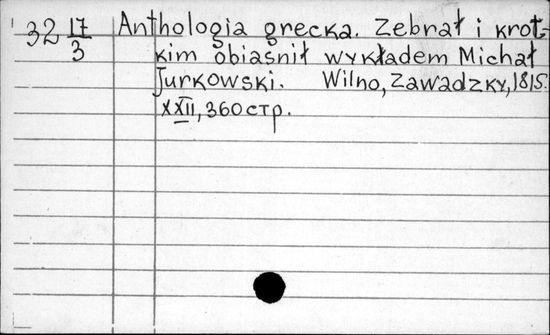 32 17/3 Anthologia grecka. Zebrał i krot-
kim obiaśnił wykładem Michał
Jurkowski. Wilno, Zawadzky, 1815.
XXII, 360 стр.